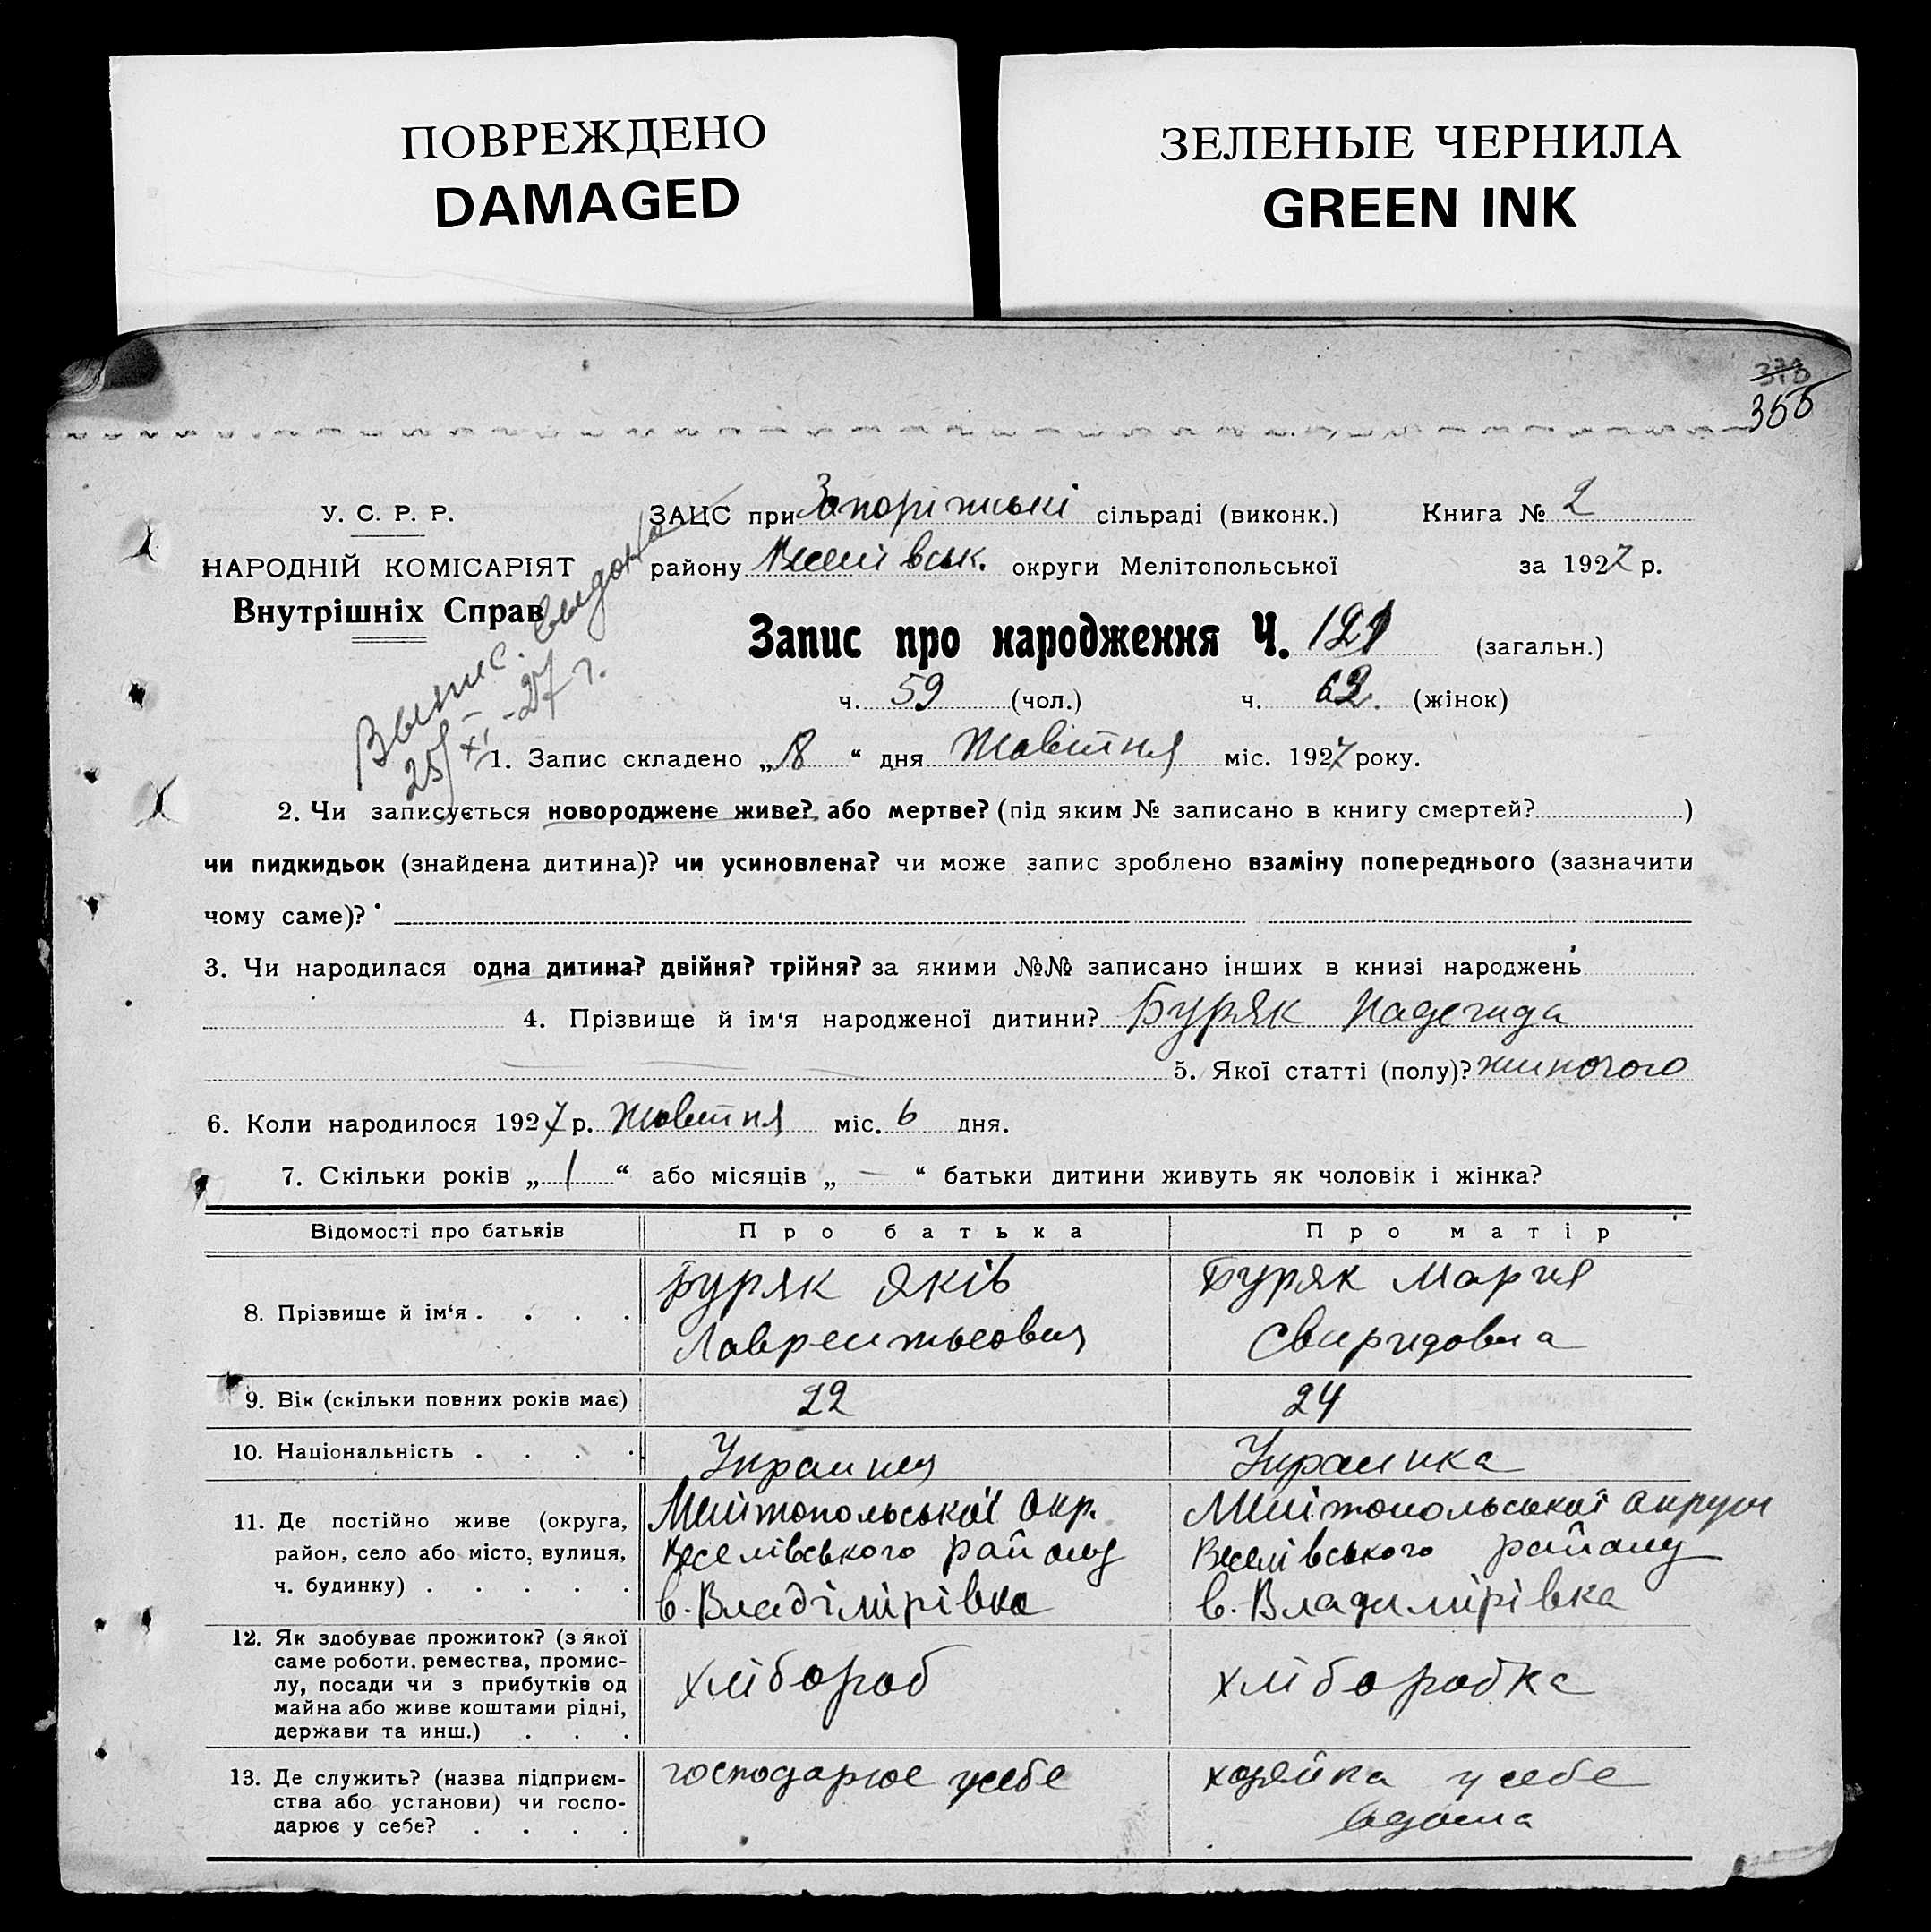 ПОВРЕЖДЕНО
DAMAGED
ЗЕЛЕНЫЕ ЧЕРНИЛА
GREEN INK
378
У. С. Р. Р.
НАРОДНІЙ КОМІСАРІЯТ
Внутрішніх Справ
Выпис. выдана
25/XI-27 г.
ЗАЦС при Запоріжські сільраді (виконк.) Книга № 2
району Веселівськ. округи Мелітопольської за 1927 р.
Запис про народження Ч. 121 (загальн.)
ч. 59 (чол.) ч. 62. (жінок)
1. Запис складено „18“ дня Жовтня міс. 1927 року.
2. Чи записується новороджене живе? або мертве? (під яким № записано в книгу смертей? )
чи пидкидьок (знайдена дитина)? чи усиновлена? чи може запис зроблено взаміну попереднього (зазначити
чому саме)?
3. Чи народилася одна дитина? двійня? трійня? за якими №№ записано інших в книзі народжень
4. Прізвище й ім‘я народженої дитини? Буряк Надежда
5. Якої статті (полу)? жиночого
6. Коли народилося 1927 р. Жовтня міс. 6 дня.
7. Скільки років „1“ або місяців „—“ батьки дитини живуть як чоловік і жінка?
Відомості про батьків Про батька Про матір
8. Прізвище й ім‘я . . . . Буряк Яків Буряк Мария
Лаврентьевич Свиридовна
9. Вік (скільки повних років має) 22 24
10. Національність . . . . Украинец Украинка
11. Де постійно живе (округа, Мелітопольської окр. Мелітопольської округи
район, село або місто, вулиця, Веселівського району Веселівського району
ч. будинку) . . . . . в. Владімірівка в. Владимірівка
12. Як здобуває прожиток? (з якої
саме роботи, ремества, промис-
лу, посади чи з прибутків од хлібороб хліборобка
майна або живе коштами рідні,
держави та инш.) . . .
13. Де служить? (назва підприєм- господарює усебе хозяйка у себе
ства або установи) чи госпо- вдома
дарює у себе? . . . .